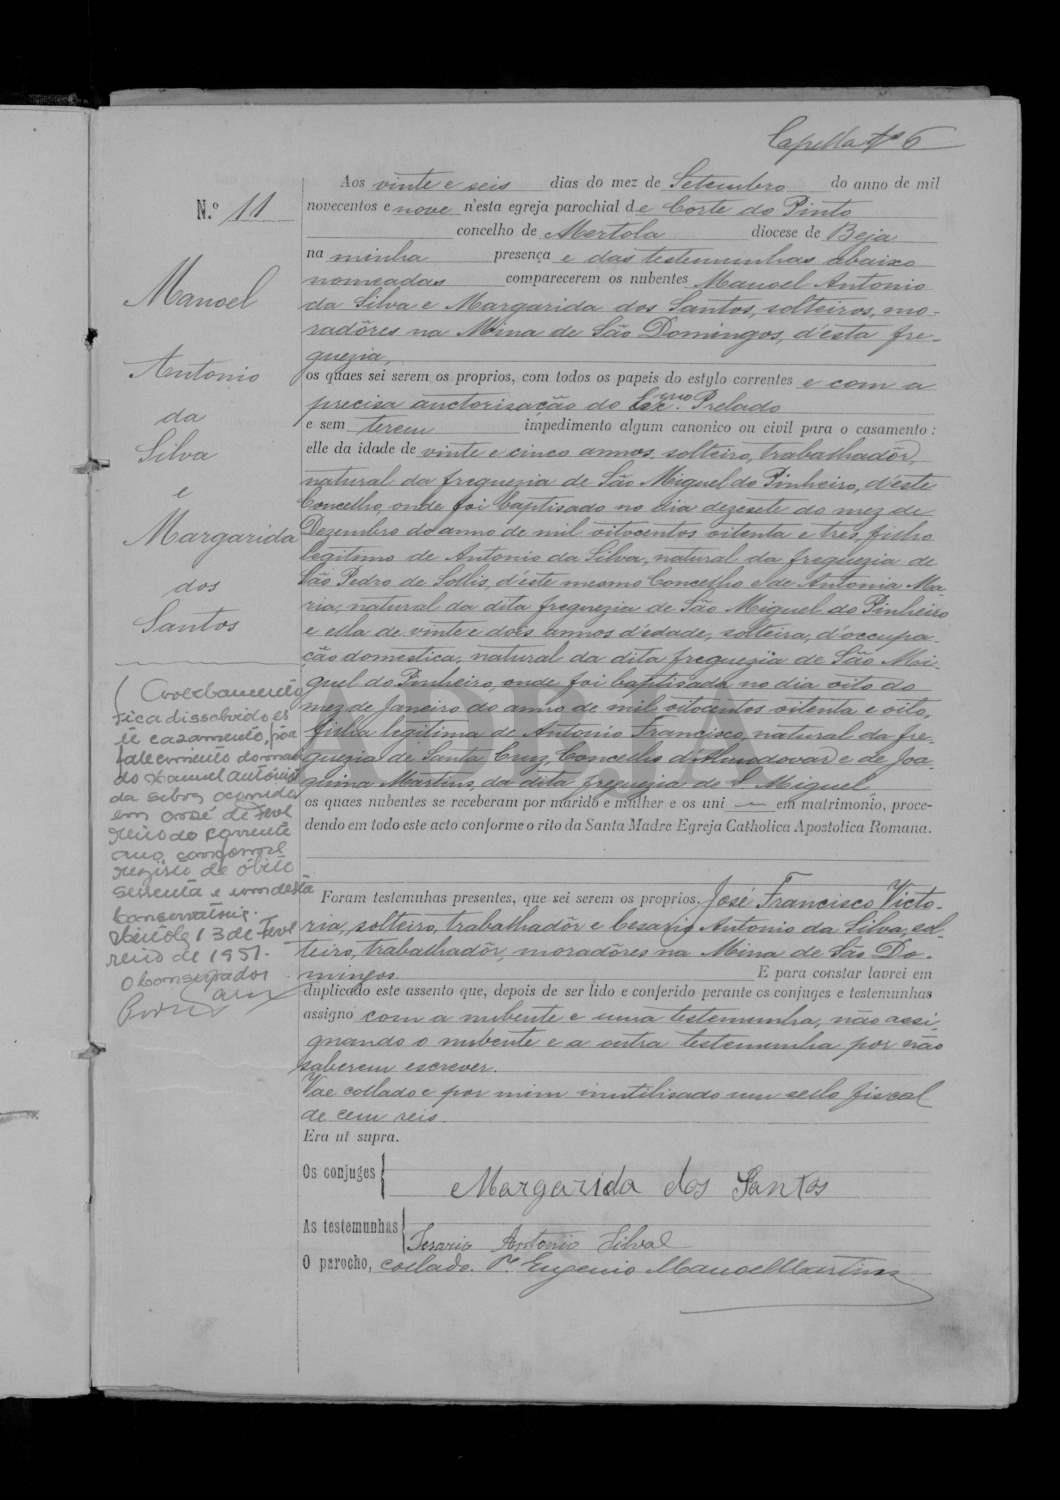 Capella Nº 6
Aos vinte e seis dias do mez de Setembro do anno de mil
N.º 11
novecentos e nove n'esta egreja parochial de Corte do Pinto
concelho de Mertola diocese de Beja
na minha presença e das testemunhas abaixo
nomeadas comparecerem os nubentes Manoel Antonio
da Silva e Margarida dos Santos, solteiros, mo-
radôres na Mina de São Domingos, d'esta fre-
guezia,
os quaes sei serem os proprios, com todos os papeis do estylo correntes e com a
precisa auctorisação do Exmo. Prelado
e sem terem impedimento algum canonico ou civil para o casamento:
elle da idade de vinte e cinco annos, solteiro, trabalhadôr,
natural da freguezia de São Miguel do Pinheiro, d'este
Concelho, onde foi baptisado no dia dezesete do mez de
Dezembro do anno de mil oitocentos oitenta e tres, filho
legitimo de Antonio da Silva, natural da freguezia de
São Pedro de Sollis, d'este mesmo Concelho e de Antonia Ma-
ria, natural da dita freguezia de São Miguel do Pinheiro
e ella de vinte e dois annos d'edade, solteira, d'occupa-
ção domestica, natural da dita freguezia de São Mi-
guel do Pinheiro, onde foi baptisada no dia oito do
mez de Janeiro do anno de mil oitocentos oitenta e oito,
filha legitima de Antonio Francisco, natural da fre-
guezia de Santa Cruz, Concelho d'Almodovar e de Joa-
quina Martins, da dita freguezia de S. Miguel
os quaes nubentes se receberam por marido e mulher e os uni em matrimonio, proce-
dendo em todo este acto conforme o rito da Santa Madre Egreja Catholica Apostolica Romana.
Foram testemunhas presentes, que sei serem os proprios, José Francisco Victo-
ria, solteiro, trabalhadôr e Cesario Antonio da Silva, sol-
teiro, trabalhadôr, moradôres na Mina de São Do-
mingos. E para constar lavrei em
duplicado este assento que, depois de ser lido e conferido perante os conjuges e testemunhas
assigno com a nubente e uma testemunha, não assi-
gnando o nubente e a outra testemunha por não
saberem escrever.
Vae collado e por mim inutilisado um sello fiscal
de cem reis.
Era ut supra.
Os conjuges
Margarida dos Santos
As testemunhas
Sesario Antonio Silva
O parocho, collado. Pe. Eugenio Manoel Martins
Manoel
Antonio
da
Silva
e
Margarida
dos
Santos
fica dissolvido es
te casamento, por
falecimento do mari
do Manuel António
da Silva ocorrido
em onze de Feve
reiro do corrente
ano, conforme
registo de óbito
sessenta e um desta
Conservatória.
Mértola 13 de Feve
reiro de 1951.
O Conservador
ADBJA